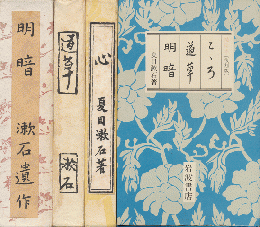 明暗
漱石遺作
道草
漱石
心
夏目漱石著
こゝろ
道草
明暗
夏目漱石著
岩波書店